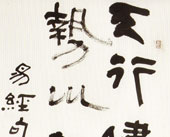 天行健
勢
易經句